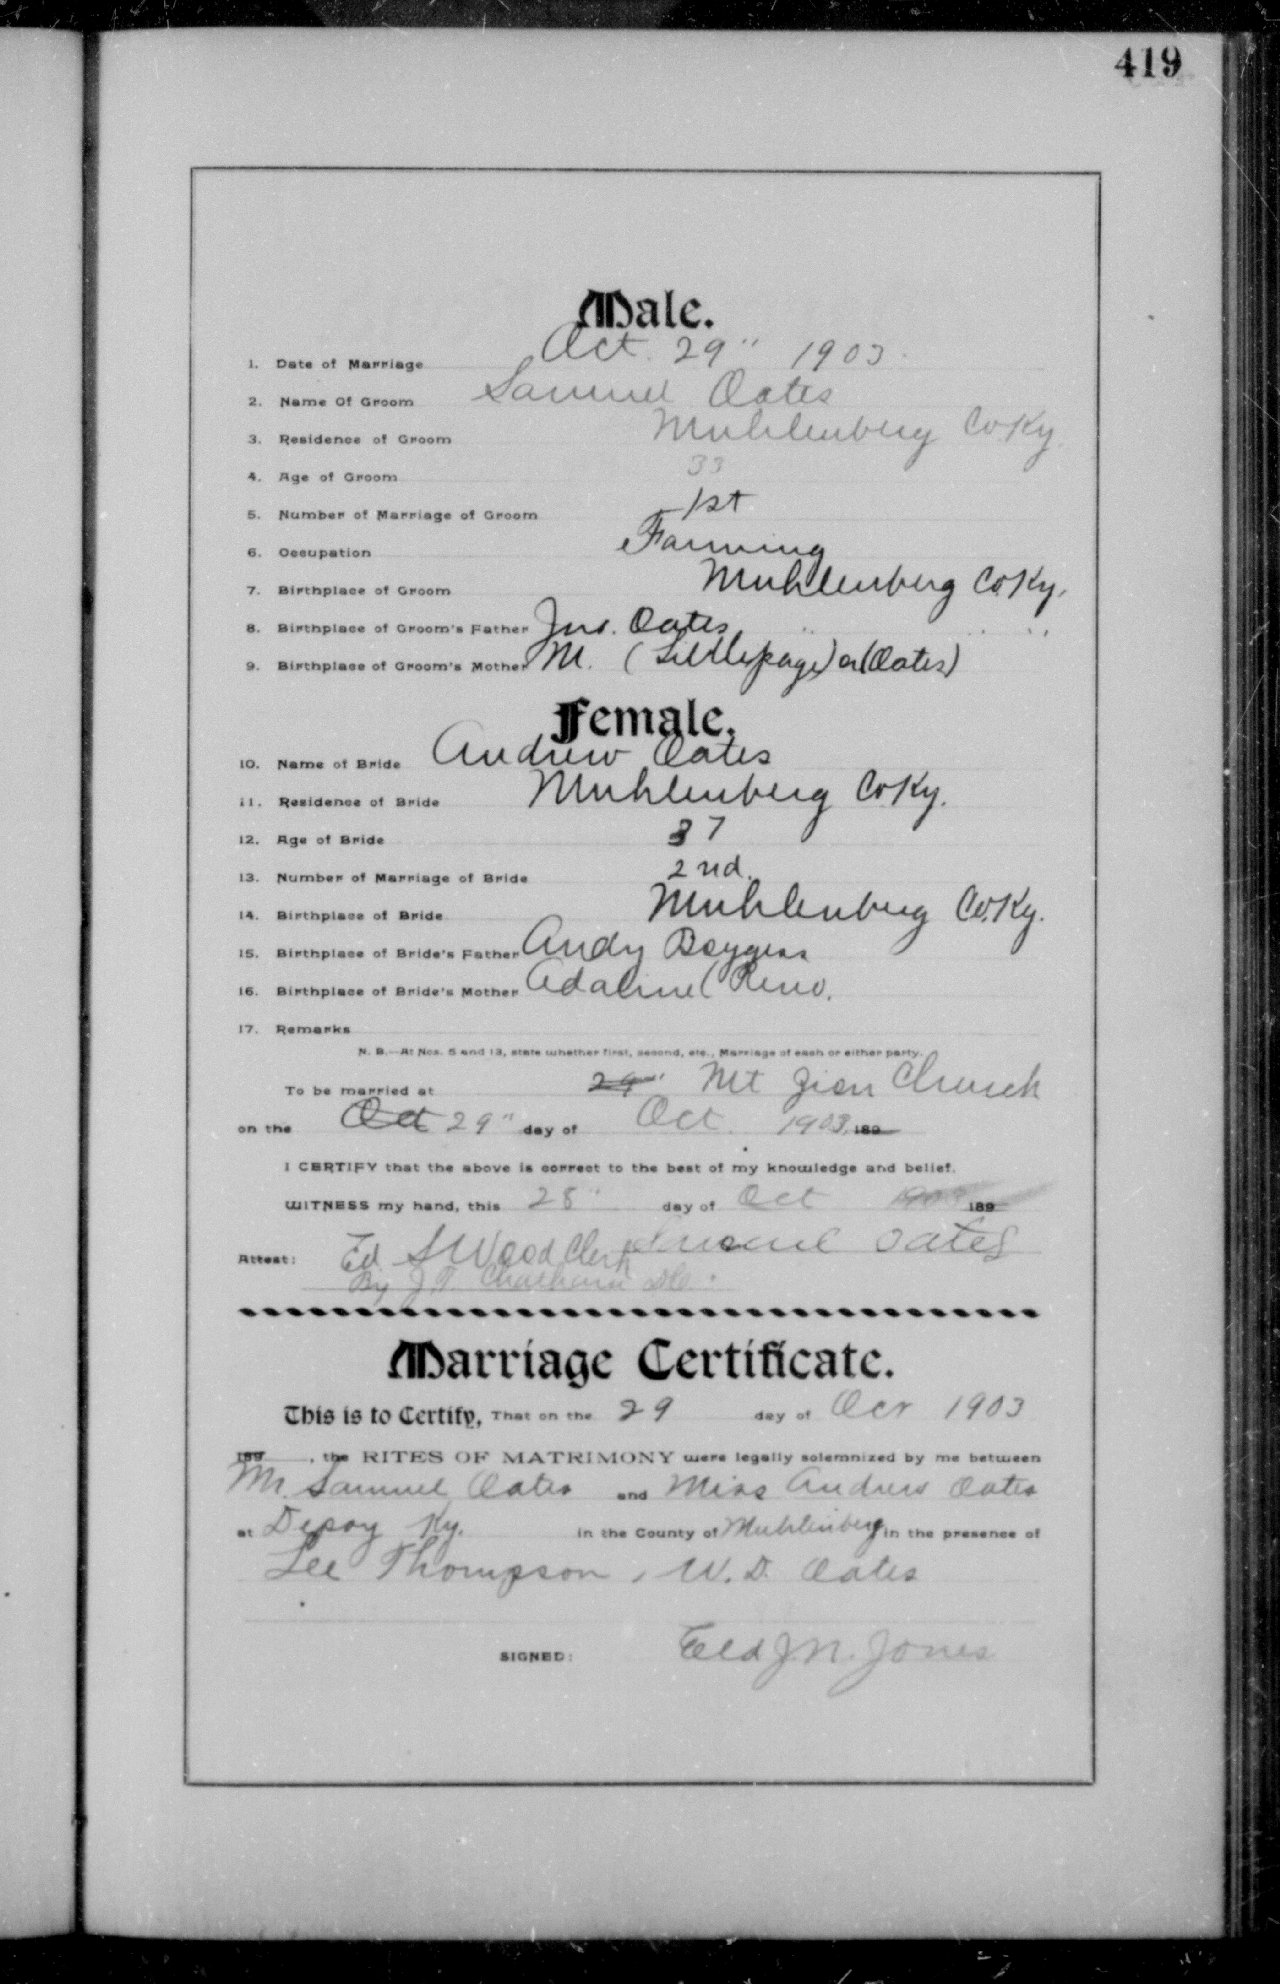 419
Male.
1. Date of Marriage Oct. 29" 1903.
2. Name Of Groom Samuel Oates
3. Residence of Groom Muhlenberg Co. Ky.
4. Age of Groom 33
5. Number of Marriage of Groom 1st
6. Occupation Farming
7. Birthplace of Groom Muhlenberg Co. Ky.
8. Birthplace of Groom's Father Jno. Oates " "
9. Birthplace of Groom's Mother M. (Littlepage) or (Oates)
Female.
10. Name of Bride Andrew Oates
11. Residence of Bride Muhlenberg Co. Ky.
12. Age of Bride 37
13. Number of Marriage of Bride 2nd.
14. Birthplace of Bride Muhlenberg Co. Ky.
15. Birthplace of Bride's Father Andy Boggess
16. Birthplace of Bride's Mother Adaline (Reno.
17. Remarks
N. B.—At Nos. 5 and 13, state whether first, second, etc., Marriage of each or either party.
To be married at 29" Mt Zion Church
on the Oct 29" day of Oct. 1903. 189
I CERTIFY that the above is correct to the best of my knowledge and belief.
WITNESS my hand, this 28" day of Oct 1903 189
Samuel Oates
Attest: Ed S Wood Clerk
By J. T. DC.
Marriage Certificate.
This is to Certify, That on the 29 day of Oct 1903
189 , the RITES OF MATRIMONY were legally solemnized by me between
Mr. Samuel Oates and Miss Andrew Oates
at Depoy Ky. in the County of Muhlenberg in the presence of
Lee Thompson, W. D. Oates
SIGNED: Eld J. N. Jones